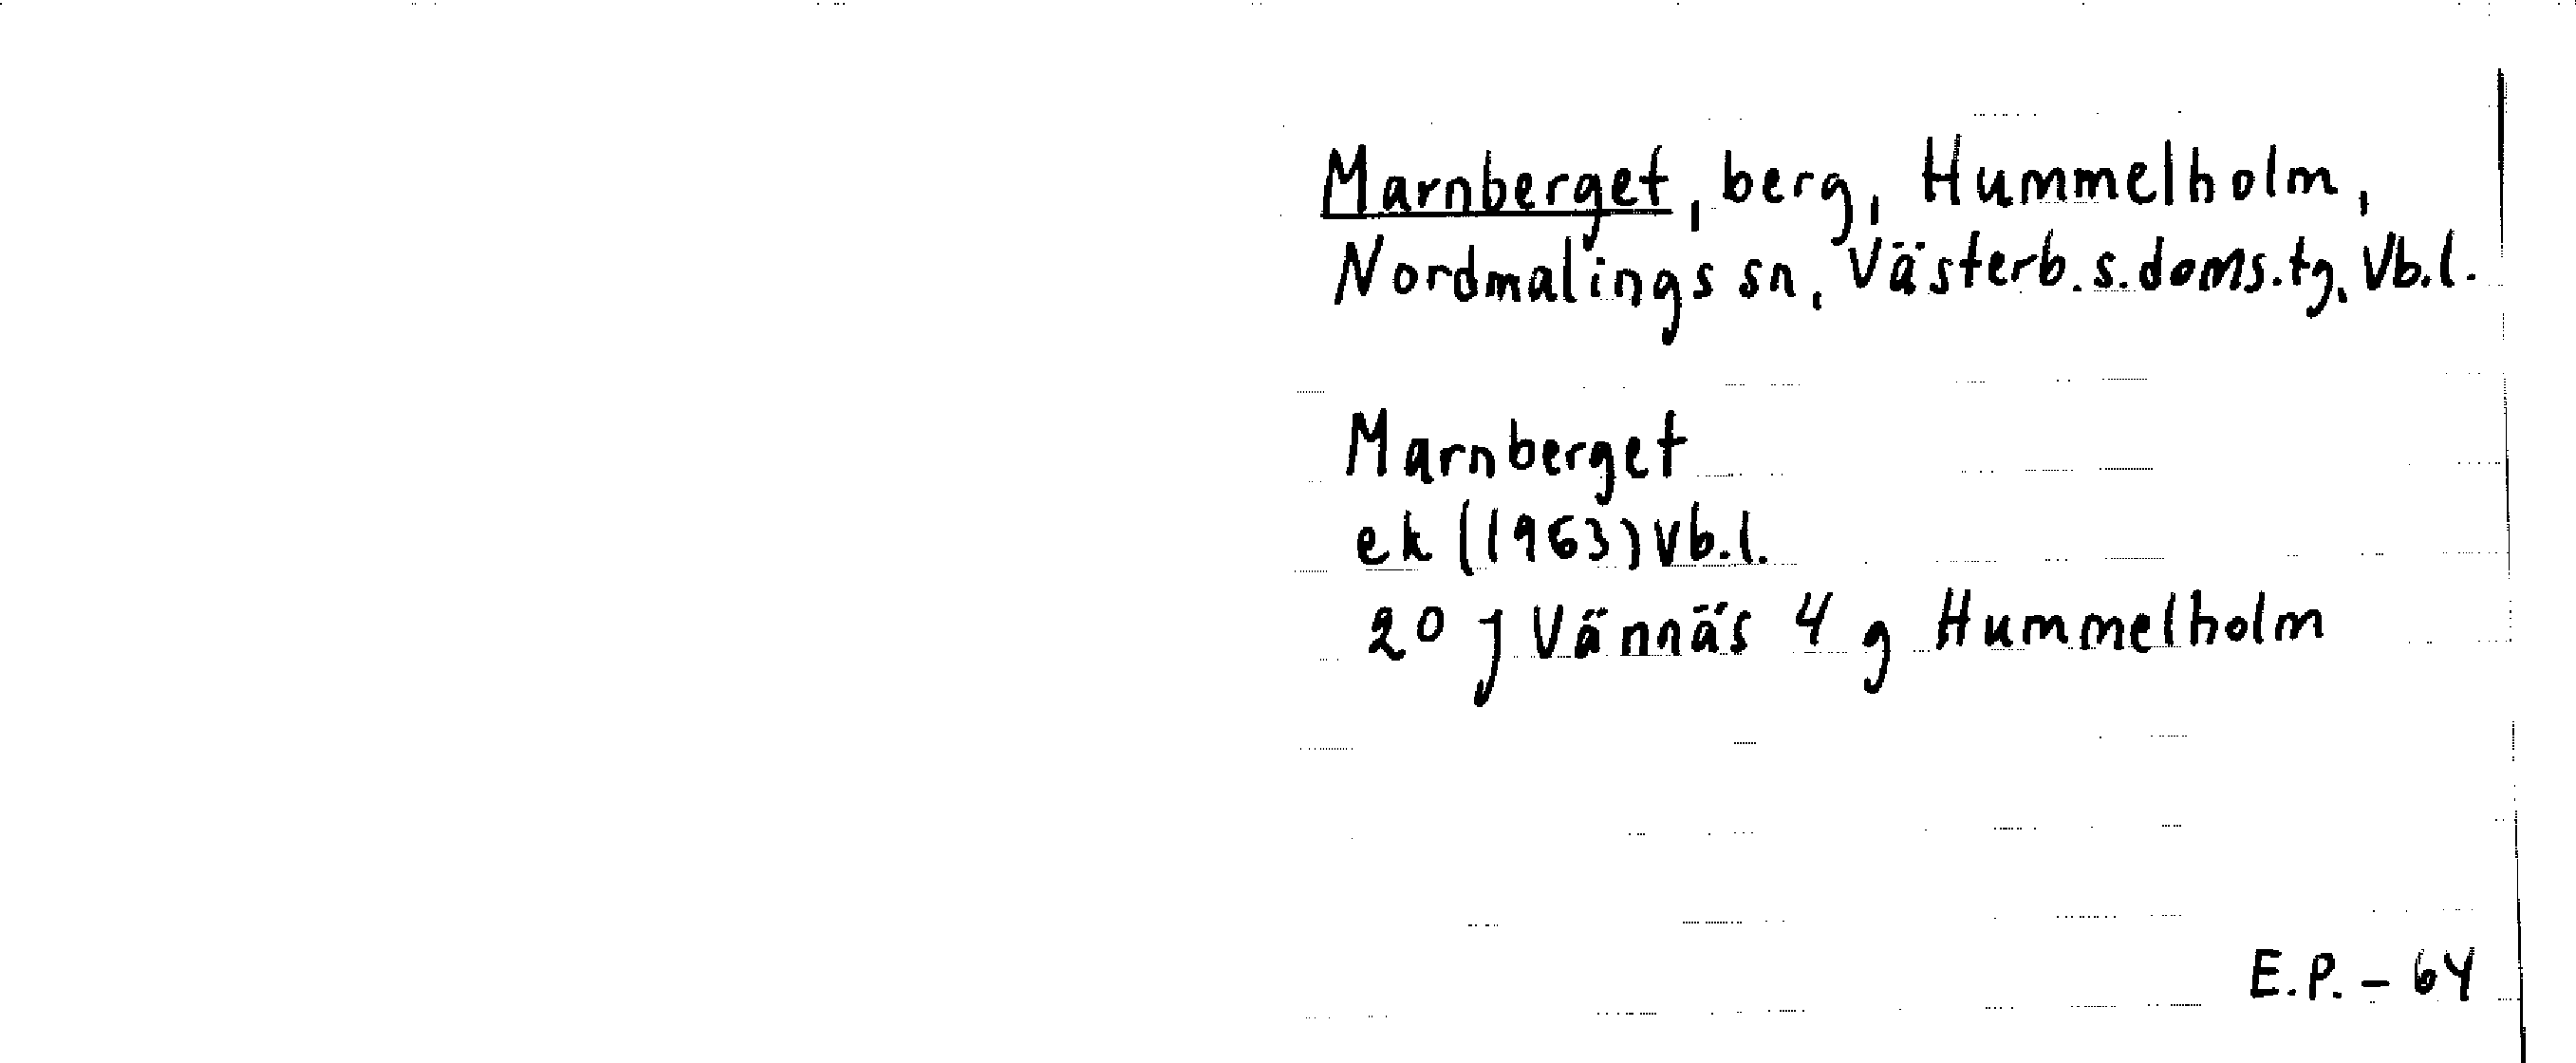 Marnberget, berg, Hummelholm,
Nordmalings sn, Västerb.s.doms.tg, Vb.l.
Marnberget
ek (1963) Vb.l.
20 J Vännäs 4 g Hummelholm
E.P. - 64